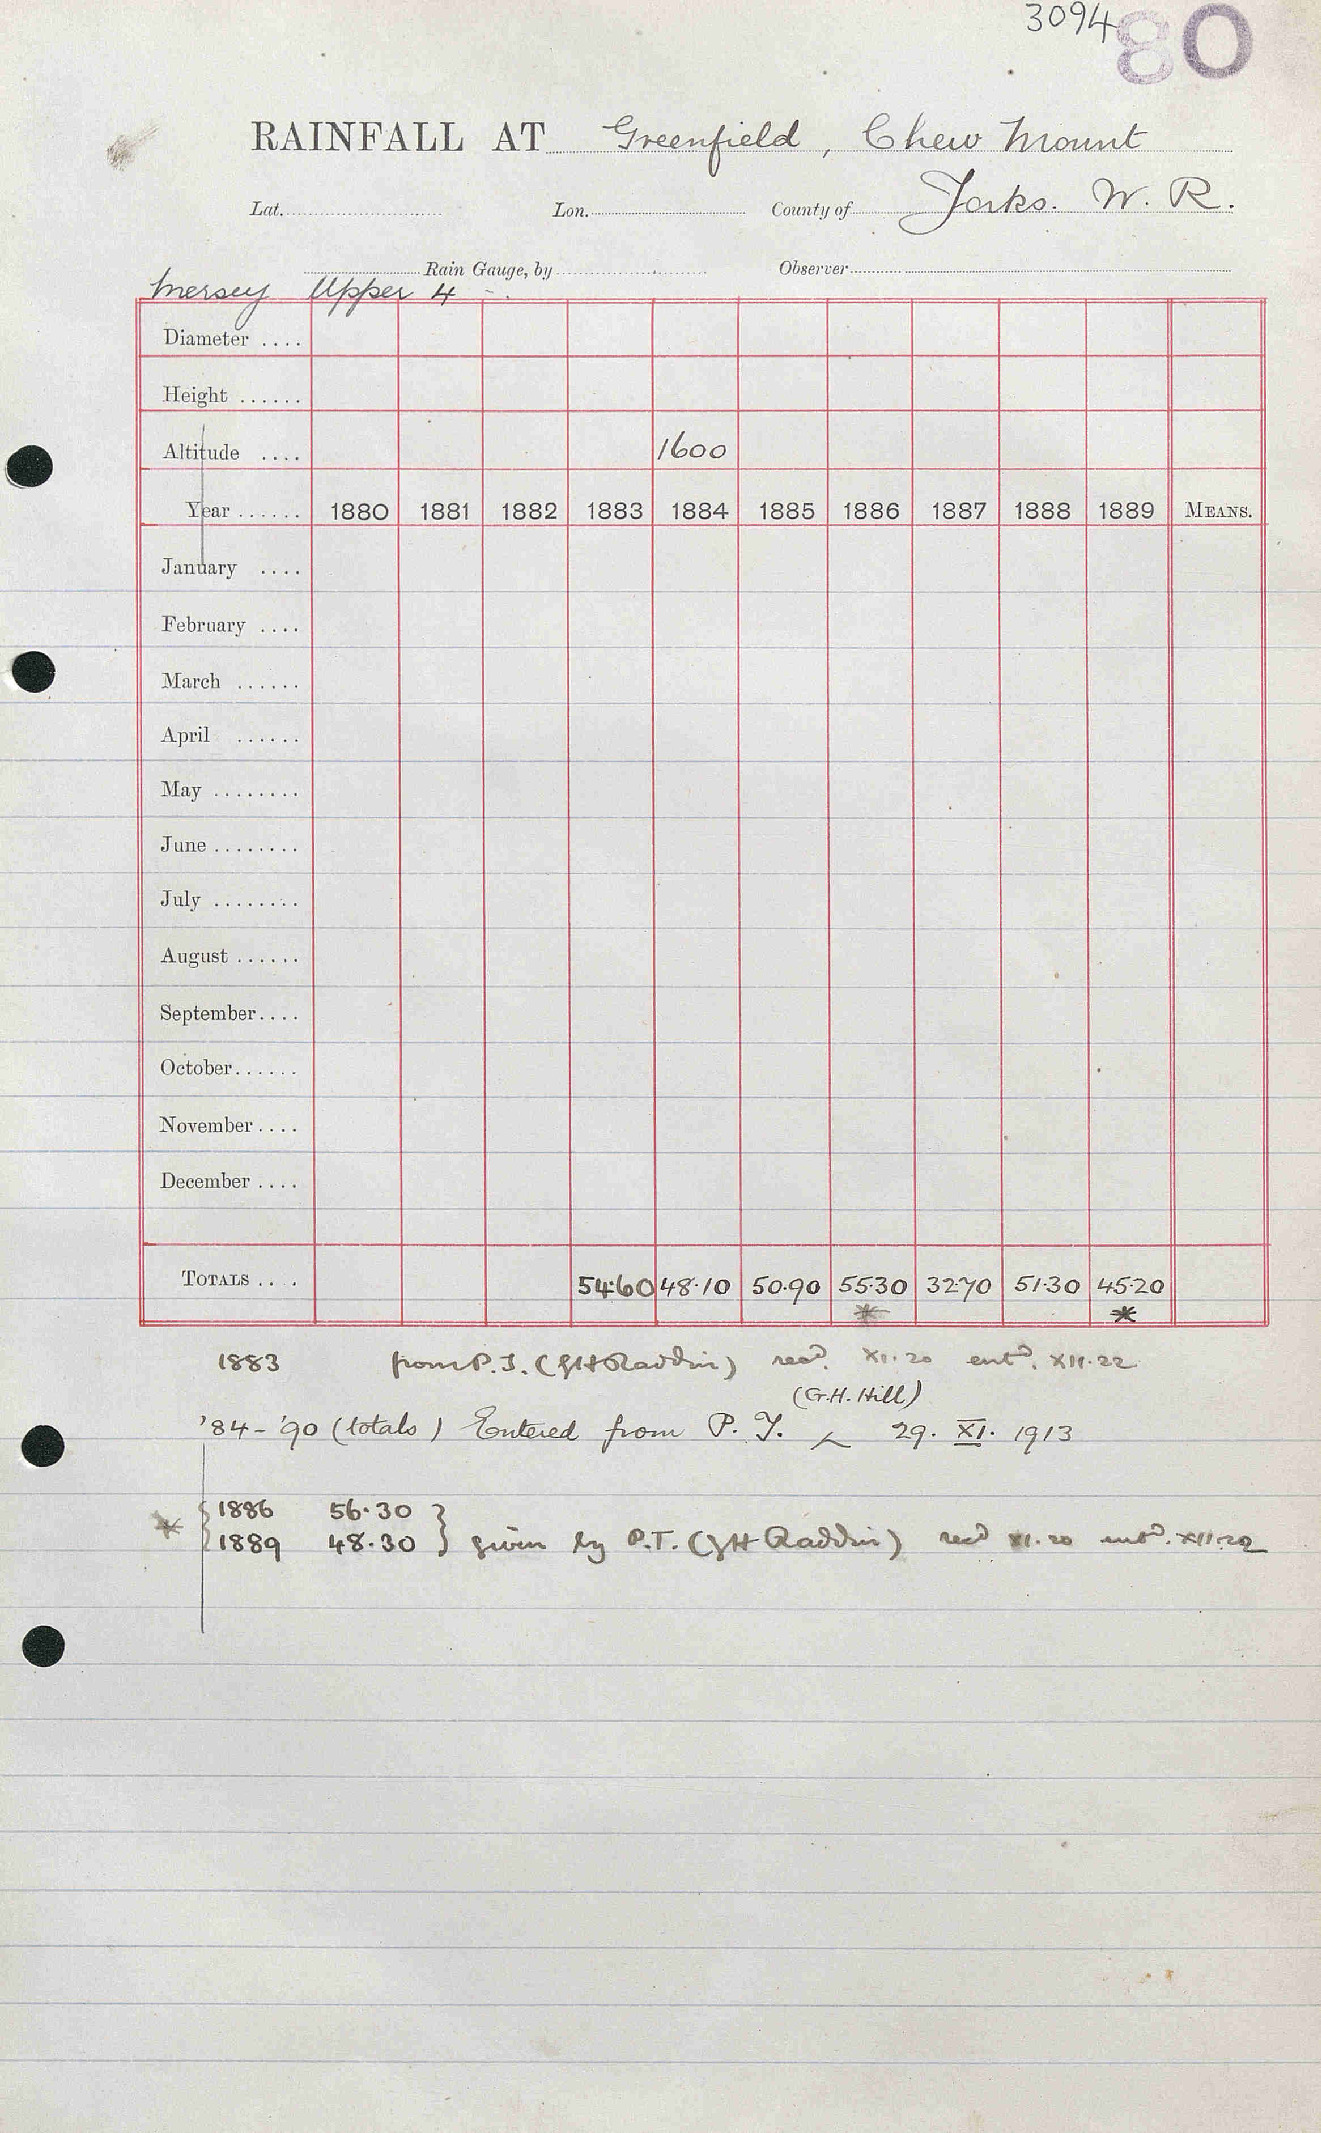 3094 80
RAINFALL AT Greenfield, Chew Mount
Lat. Lon. County of Yorks. W. R.
Rain Gauge, by Observer
Mersey Upper 4
Diameter ....
Height ......
Altitude .... 1600
Year ...... 1880 1881 1882 1883 1884 1885 1886 1887 1888 1889 MEANS.
January ....
February ....
March ......
April ......
May ........
June ........
July ........
August ......
September....
October......
November....
December ....
TOTALS .... 54.60 48.10 50.90 55.30 32.70 51.30 45.20
* *
1883 from P.T. (JH Raddin) recd. XI.20 entd. XII.22
(G.H. Hill)
'84-'90 (totals) Entered from P. T. ^ 29. XI. 1913
* { 1886 56.30 }
1889 48.30 } given by P.T. (JH Raddin) recd XI.20 entd. XII.22